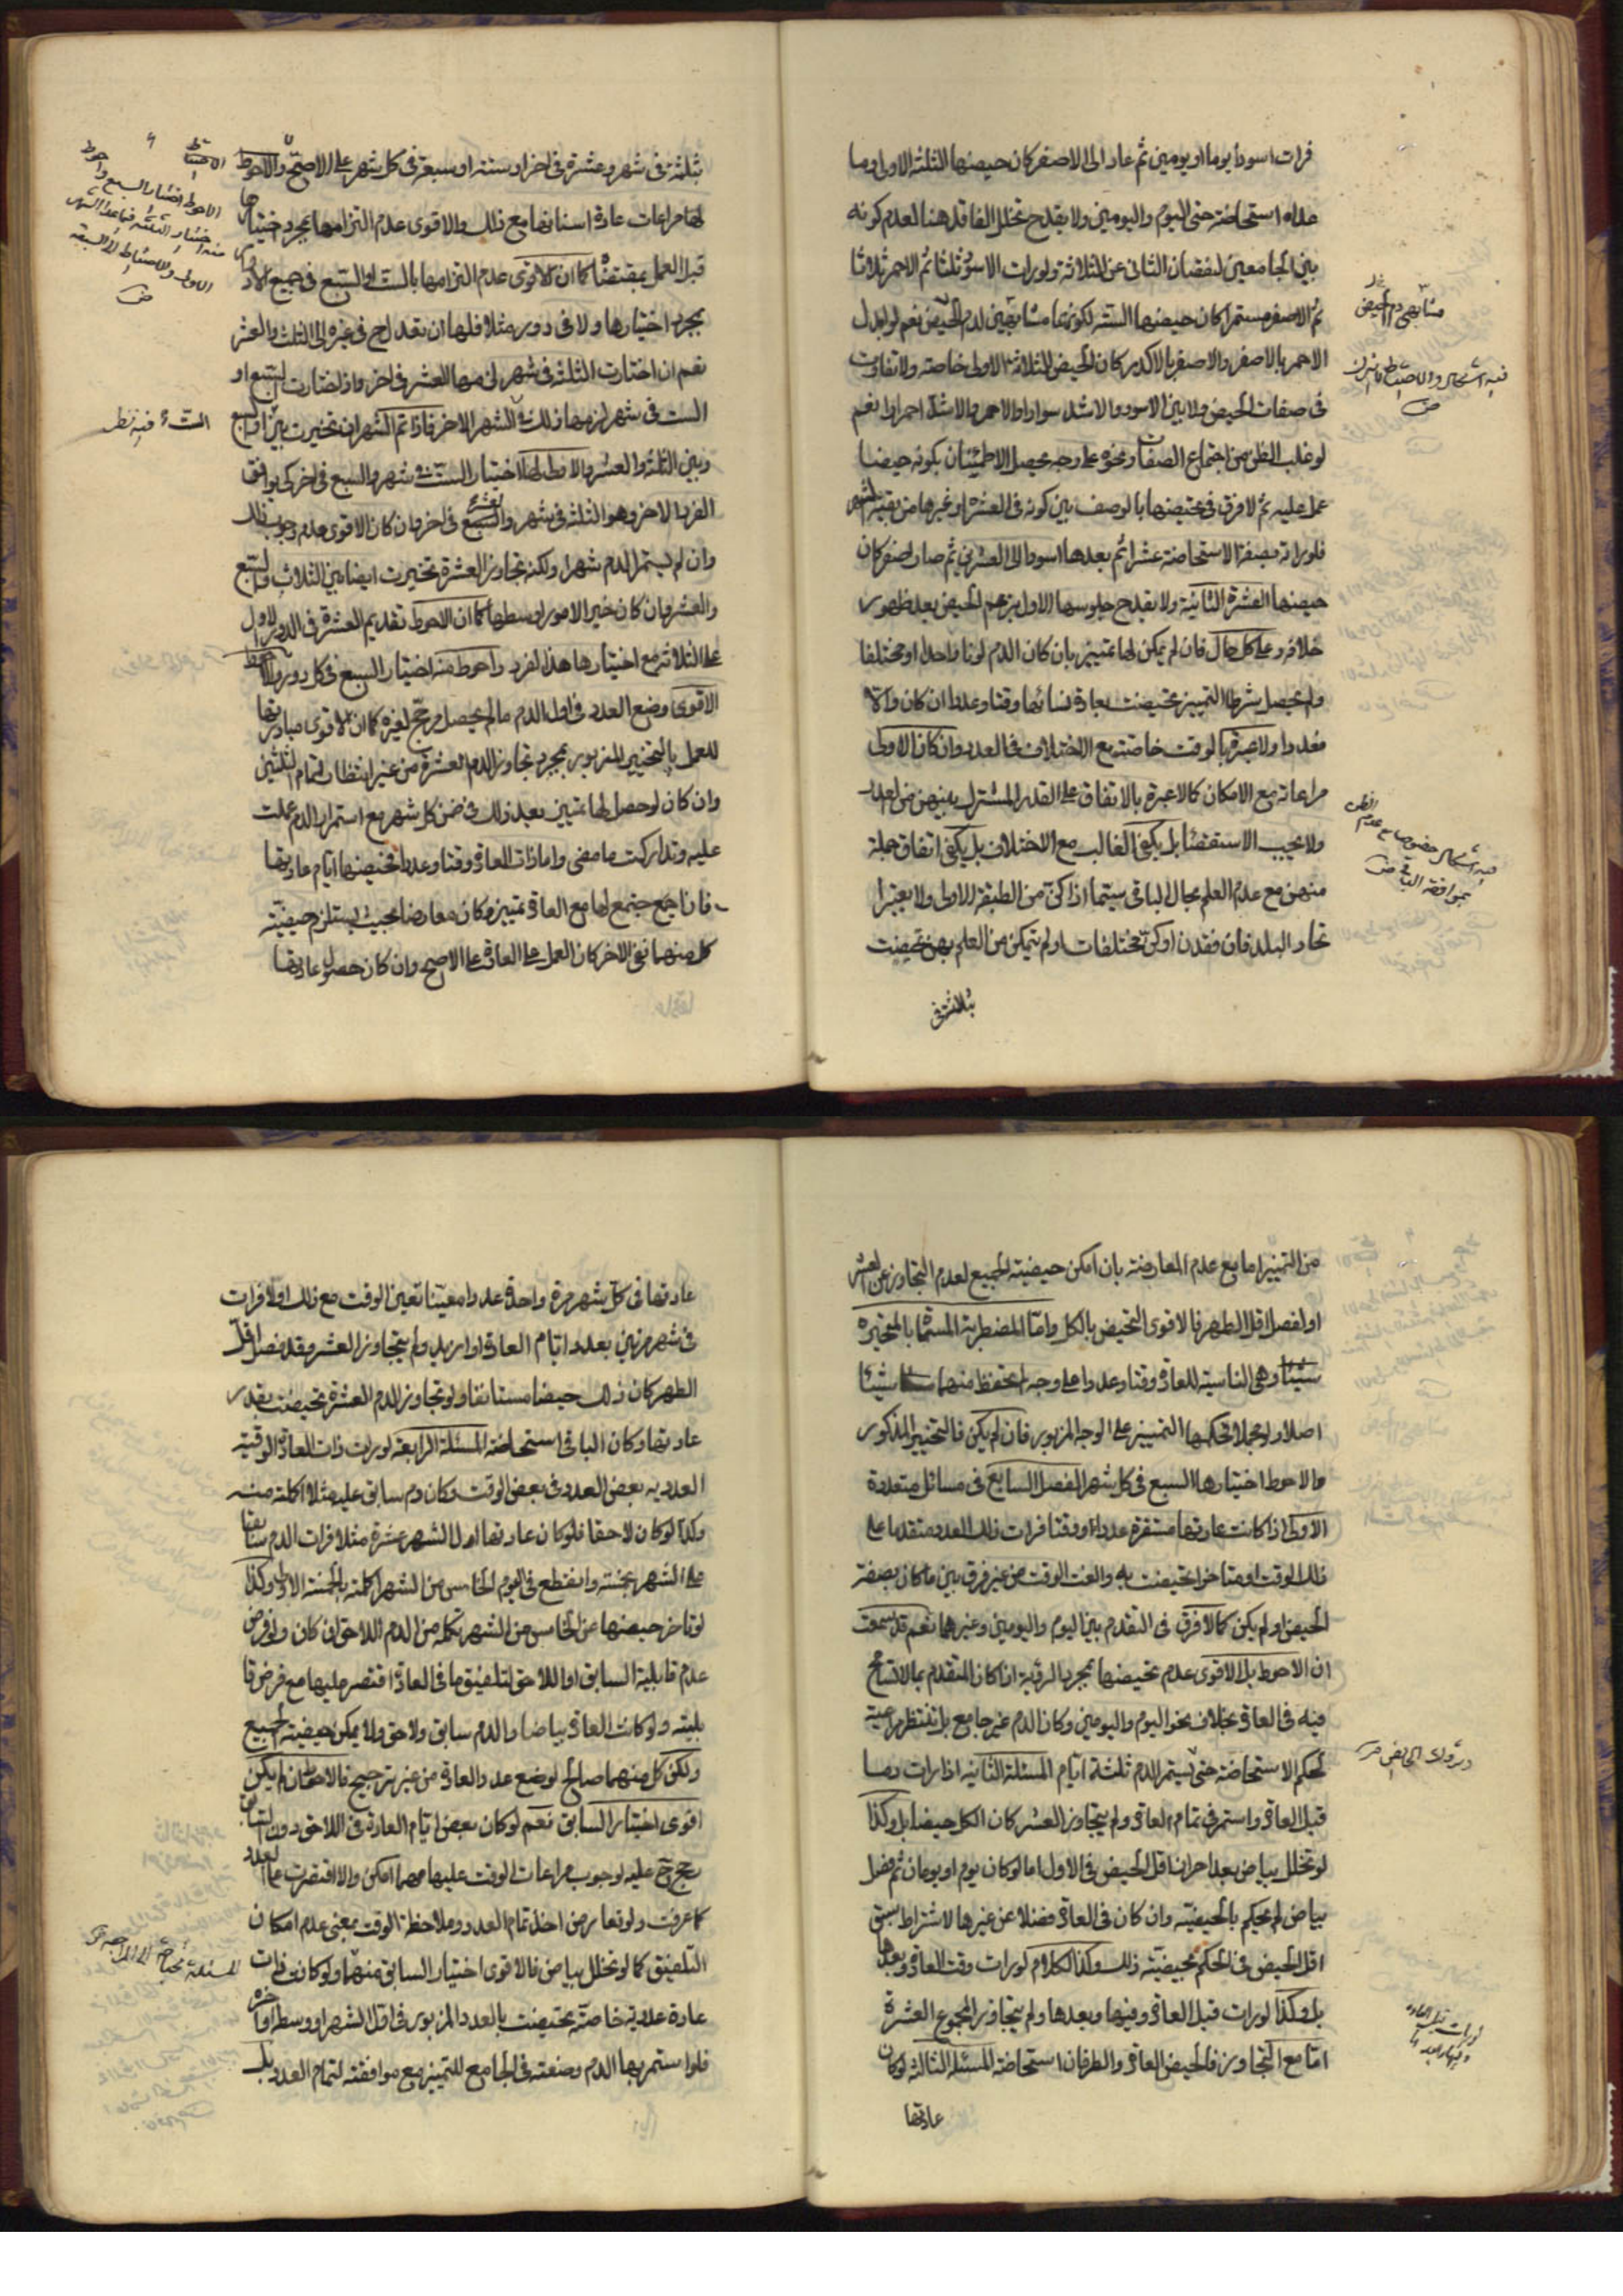 فرات اسود يوما او يومين ثم عاد الى الاصفر كان حيضها الثلثة الاولى وما
عداه استحاضة حتى اليوم واليومين ولا يقدح تخلل الفاقد هنا لعدم كونه
بين الجامعين لنقصان الثانى عن الثلاثة ولو رات الاسود ثلثا ثم الاحمر ثلاثا
ثم الاصفر مستمرا كان حيضها الستة لكونهما مشابهين لدم الحيض نعم لو ابدل
الاحمر بالاصفر والاصفر بالاكدر كان الحيض الثلاثة الاولى خاصة ولا تفاوت
فى صفات الحيض ولا بين الاسود والاشد سوادا والاحمر والاشد احمرارا نعم
لو غلب الظن من اجتماع الصفات ونحوه على وجه يحصل الاطمئنان بكونه حيضا
عمل عليه ثم لا فرق فى تحيضها بالوصف بين كونه فى العشرة او غيرها من بقية الشهر
فلو راته بصفة الاستحاضة عشرا ثم بعدها اسود الى العشرين ثم صار اصفر كان
حيضها العشرة الثانية ولا يقدح جلوسها الاول بزعم الحيض بعد ظهور
خلافه وعلى كل حال فان لم يمكن لها تمييز بان كان الدم لونا واحدا او مختلفا
ولم يحصل شرط التمييز تحيضت بعادة نسائها وقتا وعددا ان كان والا
فعددا ولا عبرة بالوقت خاصة مع الاختلاف فى العدد وان كان الاولى
مراعاته مع الامكان كالا عبرة بالاتفاق على القدر المشترك بينهن من العدد
ولا يجب الاستقصاء بل يكفى الغالب مع الاختلاف بل يكفى اتفاق جملة
منهن مع عدم العلم بحال الباقى سيما اذا كن من الطبقة الاولى ولا يعتبر
اتحاد البلد فان فقدن او كن مختلفات او لم يتمكن من العلم بهن تحيضت
بثلاثة فى
مشابهى دم الحيض
فيه اشكال والاحتياط لا يترك
فيه اشكال خصوصا مع عدم الظن
بموافقة الباقى
بثلثة فى شهر وعشرة فى اخر او ستة او سبعة فى كل شهر على الاصح والاحوط
لها مراعات عادة اسنانها مع ذلك والاقوى عدم التزامها بمجرد اختيارها
قبل العمل بمقتضاه كما ان الاقوى عدم التزامها بالست او السبع فى جميع الادوار
بمجرد اختيارها ولا فى دور مثلا فلها ان تعدل ح فى غيره الى الثلث والعشر
نعم ان اختارت الثلثة فى شهر لزمها العشر فى اخر واذ اختارت السبع او
الست فى شهر لزمها ذلك فى الشهر الاخر فاذا تم الشهران تخيرت بين السبع
وبين الثلثة والعشر والاحوط لها اختيار الست فى شهر والسبع فى اخر كى يوافق
الفرد الاخر وهو الثلثة فى شهر والعشرة فى اخر وان كان الاقوى عدم وجوب ذلك
وان لم يستمر الدم شهرا ولكنه تجاوز العشرة تخيرت ايضا بين الثلاث والسبع
والعشر وان كان خير الامور اوسطها كما ان الاحوط تقديم العشرة فى الدور الاول
على الثلاثة مع اختيارها هذا الفرد واحوط منه اختيار السبع فى كل دور والاحوط
الاقوى وضع العدد فى اول الدم ما لم يحصل مرجح لغيره كما ان الاقوى مبادرتها
للعمل بالتخيير المزبور بمجرد تجاوز الدم العشرة من غير انتظار لتمام الثلثين
وان كان لو حصل لها تمييز بعد ذلك فى ضمن كل شهر مع استمرار الدم عملت
عليه وتداركت ما مضى واما ذات العادة وقتا وعددا تحيضها ايام عادتها
فان اجتمع لها مع العادة تمييز وكان معارضا بحيث يستلزم حيضية
كل منهما نفى الاخر كان العمل على العادة على الاصح وان كان حصول عادتها
الاحتياط
الاحوط اختيار السبع واحوط
منه اختيار الثلثة فيما عدا الشهر
الاول والاحتياط الى السبعة
الست فيه نظر
من التمييز اما مع عدم المعارضة بان امكن حيضية الجميع لعدم التجاوز عن العشر
او لفصل اقل الطهر فالاقوى التحيض بالكل واما المضطربة المسماة بالمتحيرة
وهى الناسية للعادة وقتا وعددا على وجه لم تحفظ منها شيئا
اصلا ولو مجملا فحكمها التمييز على الوجه المزبور فان لم يكن فالتخيير المذكور
والاحوط اختيارها السبع فى كل شهر الفصل السابع فى مسائل متعددة
الاولى اذا كانت عادتها مستقرة عددا ووقتا فرات ذلك العدد متقدما على
ذلك الوقت او متاخرا تحيضت به والغت الوقت من غير فرق بين ما كان بصفة
الحيض او لم يكن كما لا فرق فى التقدم بين اليوم واليومين وغيرهما نعم قد سمعت
ان الاحوط بل الاقوى عدم تحيضها بمجرد الرؤية ان كان المتقدم بما لا تسامح
فيه فى العادة بخلاف نحو اليوم واليومين وكان الدم غير جامع بل تنتظر مراعية
لحكم الاستحاضة حتى يستمر الدم ثلثة ايام المسئلة الثانية اذا رات دما
قبل العادة واستمر فى تمام العادة ولم يتجاوز العشر كان الكل حيضا بل وكذا
لو تخلل بياض بعد احراز اقل الحيض فى الاول اما لو كان يوم او يومان ثم فصل
بياض لم يحكم بالحيضية وان كان فى العادة فضلا عن غيرها لاشتراط سبق
اقل الحيض فى الحكم بحيضيته ذلك وكذا الكلام لو رات وقت العادة وبعدها
بل وكذا لو رات قبل العادة وفيها وبعدها ولم يتجاوز المجموع العشرة
اما مع التجاوز فالحيض العادة والطرفان استحاضة المسئلة الثالثة لو كان
عادتها
لو رات قبل العادة
وفيها وبعدها
عادتها فى كل شهر مرة واحدة عددا معينا تعين الوقت مع ذلك او لا فرات
فى شهر مرتين بعدد ايام العادة او ازيد ولم يتجاوز العشر وقد فصل اقل
الطهر كان ذلك حيضا مستانفا ولو تجاوز الدم العشرة تحيضت بقدر
عادتها وكان الباقى استحاضة المسئلة الرابعة لو رات ذات العادة الوقتية
العددية بعض العدد فى بعض الوقت وكان دم سابق عليه مثلا اكملته منه
وكذا لو كان لاحقا فلو كان عادتها اول الشهر عشرة مثلا فرات الدم سابقا
على الشهر بخمسة وانقطع فى اليوم الخامس من الشهر اكملته بالخمسة الاولى وكذا
لو تاخر حيضها عن الخامس من الشهر تكمله من الدم اللاحق ان كان ولو فرض
عدم قابلية السابق او اللاحق لتلفيق ما فى العادة اقتصر عليها مع فرض قا
بليته ولو كانت العادة بياضا والدم سابق ولاحق ولا يمكن حيضية الجميع
ولكن كل منهما صالح لوضع عدد العادة من غير ترجيح فالاحوط ان لم يكن
اقوى اختيار السابق نعم لو كان بعض ايام العادة فى اللاحق دون السابق
رجح ح عليه لوجوب مراعات الوقت عليها مهما امكن والا اقتصرت على العدد
كما عرفت ولو تعارض اخذ تمام العدد وملاحظة الوقت بمعنى عدم امكان
التلفيق كما لو تخلل بياض فالاقوى اختيار السابق منهما ولو كانت ذات
عادة عددية خاصة تحيضت بالعدد المزبور فى اول الشهر او وسطه او اخره
فلو استمر بها الدم وضعته فى الجامع للتمييز مع موافقته لتمام العدد بل
المسئلة تحتاج الى المراجعة